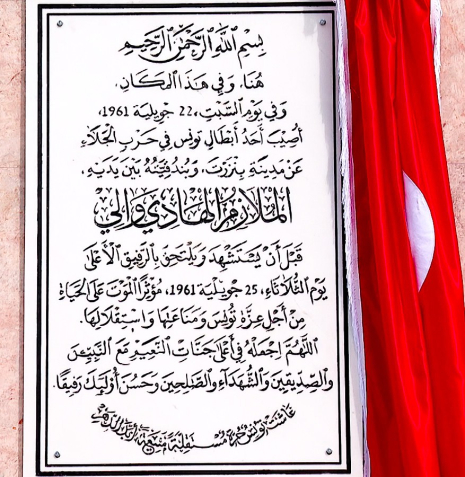 بِسْمِ اللَّهِ الرَّحْمَنِ الرَّحِيمِ
هُنَا، وَفِي هَذَا الْمَكَانِ،
وَفِي يَوْمِ السَّبْتِ، 22 جويلية 1961،
أُصِيبَ أَحَدُ أَبْطَالِ تُونِسَ فِي حَرْبِ الْجَلَاءِ
عَنْ مَدِينَةِ بِنْزَرْتَ، وَبُنْدُقِيَّتُهُ بَيْنَ يَدَيْهِ،
الْمُلَازِمُ الْهَادِي وَالِي
قَبْلَ أَنْ يَسْتَشْهِدَ وَيَلْتَحِقَ بِالرَّفِيقِ الْأَعْلَى
يَوْمَ الثُّلَاثَاءِ، 25 جويلية 1961، مُؤْثِرًا الْمَوْتَ عَلَى الْحَيَاةِ
مِنْ أَجْلِ عِزَّةِ تُونِسَ وَمَنَاعَتِهَا وَاسْتِقْلَالِهَا.
اللَّهُمَّ اجْعَلْهُ فِي أَعْلَى جَنَّاتِ النَّعِيمِ مَعَ النَّبِيِّينَ
وَالصِّدِّيقِينَ وَالشُّهَدَاءِ وَالصَّالِحِينَ وَحَسُنَ أُولَئِكَ رَفِيقًا.
عَاشَتْ تُونِسُ حُرَّةً مُسْتَقِلَّةً مَنِيعَةً أَبَدَ الدَّهْرِ